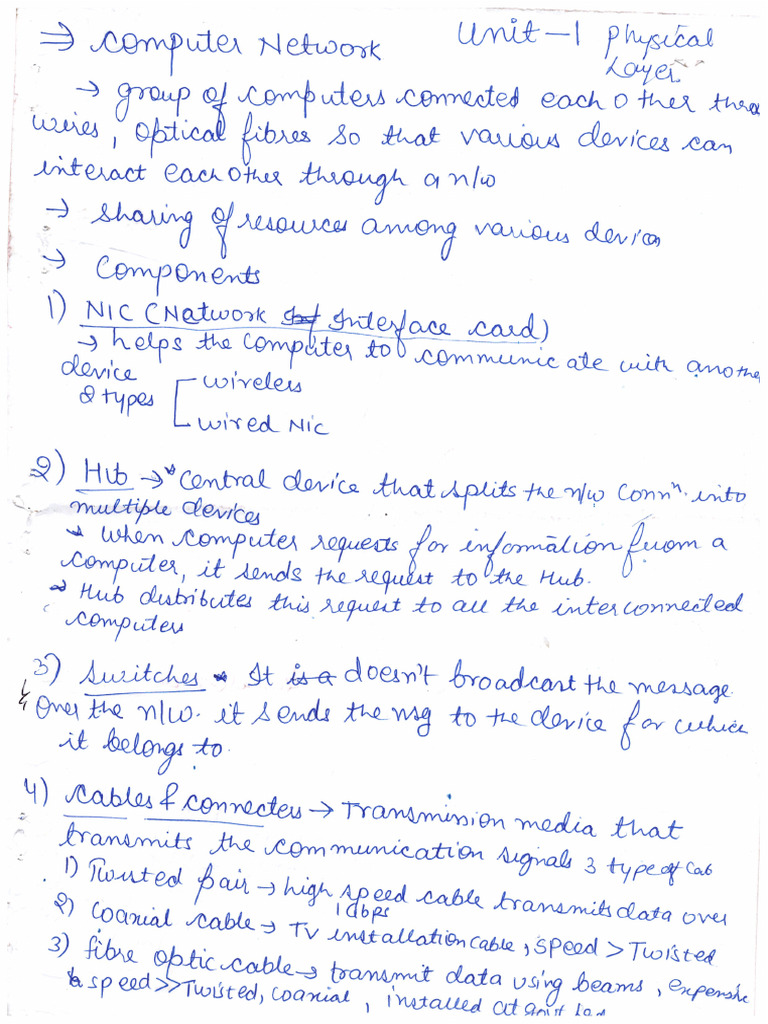 ⇒ Computer Network Unit-1 Physical Layer
→ group of computers connected each other
wires, optical fibres so that various devices can
interact each other through a n/w
→ sharing of resources among various devices
→ Components
1) NIC (Network Interface card)
→ helps the computer to communicate with another
device
2 types wireless
wired NIC
2) Hub → Central device that splits the n/w Connⁿ. into
multiple devices
→ when computer requests for information from a
computer, it sends the request to the Hub.
→ Hub distributes this request to all the interconnected
computers
3) Switches → It is a doesn't broadcast the message
over the n/w. it sends the msg to the device for which
it belongs to.
4) Cables & connecters → Transmission media that
transmits the communication signals 3 type of Cab
1) Twisted pair → high speed cable transmits data over
1Gbps
2) Coaxial cable → TV installation cable, speed > Twisted
3) fibre optic cable → transmit data using beams, expensive
speed >> Twisted, coaxial, installed at